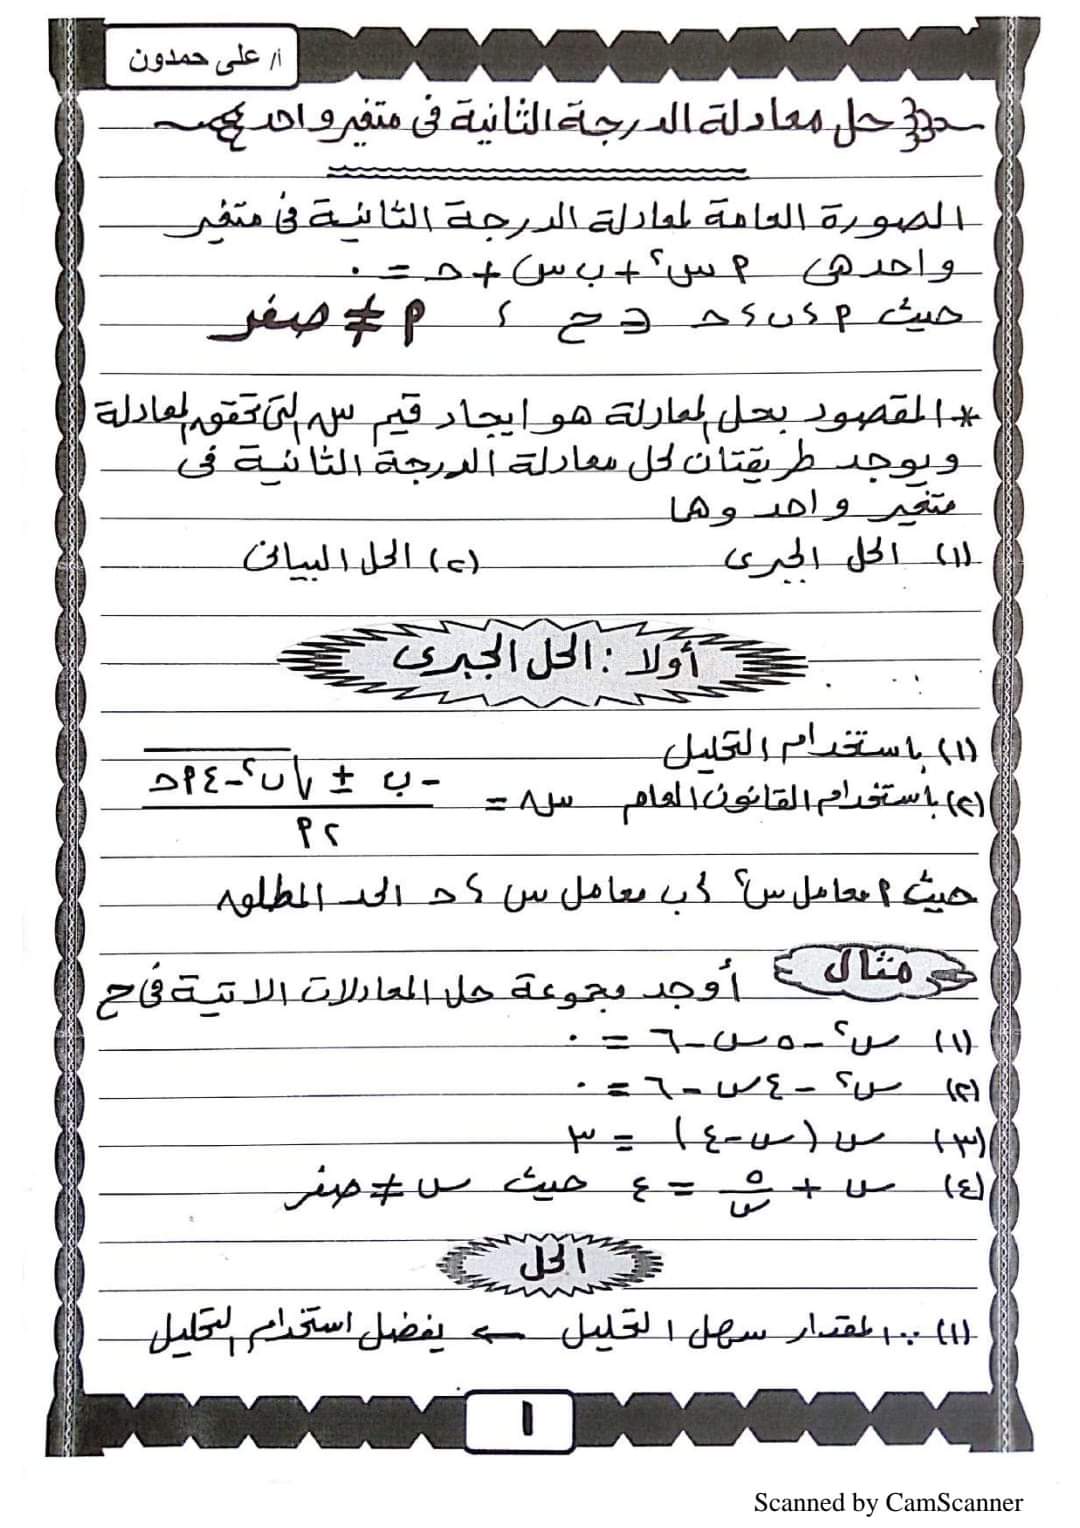 أ/ على حمدون
حل معادلة الدرجة الثانية فى متغير واحد
الصورة العامة لمعادلة الدرجة الثانية فى متغير
واحد هى أ س² + ب س + حـ = ٠
حيث أ ، ب ، حـ ∈ ح ، أ ≠ صفر
* المقصود بحل المعادلة هو ايجاد قيم س التى تحقق المعادلة
ويوجد طريقتان لحل معادلة الدرجة الثانية فى
متغير واحد وهما
(١) الحل الجبرى (٢) الحل البيانى
أولا : الحل الجبرى
(١) باستخدام التحليل
(٢) باستخدام القانون العام س = (-ب ± √(ب² - ٤ أ حـ)) / ٢ أ
حيث أ معامل س² ، ب معامل س ، حـ الحد المطلق
مثال أوجد مجموعة حل المعادلات الاتية فى ح
(١) س² - ٥ س - ٦ = ٠
(٢) س² - ٤ س - ٦ = ٠
(٣) س (س - ٤) = ٣
(٤) س + ٥/س = ٤ حيث س ≠ صفر
الحل
(١) ∵ المقدار سهل التحليل ← يفضل استخدام التحليل
١
Scanned by CamScanner